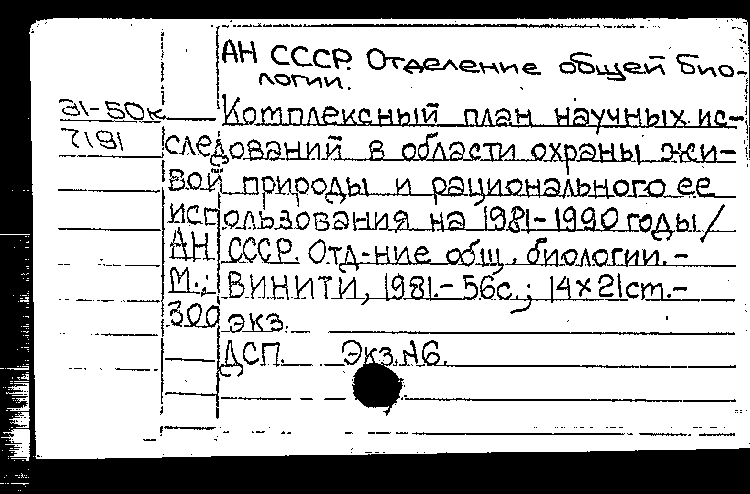 АН СССР. Отделение общей био-
логии.
31-50к Комплексный план научных ис-
7191 следований в области охраны жи-
вой природы и рационального ее
использования на 1981-1990 годы /
АН СССР. Отд-ние общ. биологии. -
М.; ВИНИТИ, 1981. - 56с.; 14×21cm. -
300 экз.
ДСП. Экз. №6.